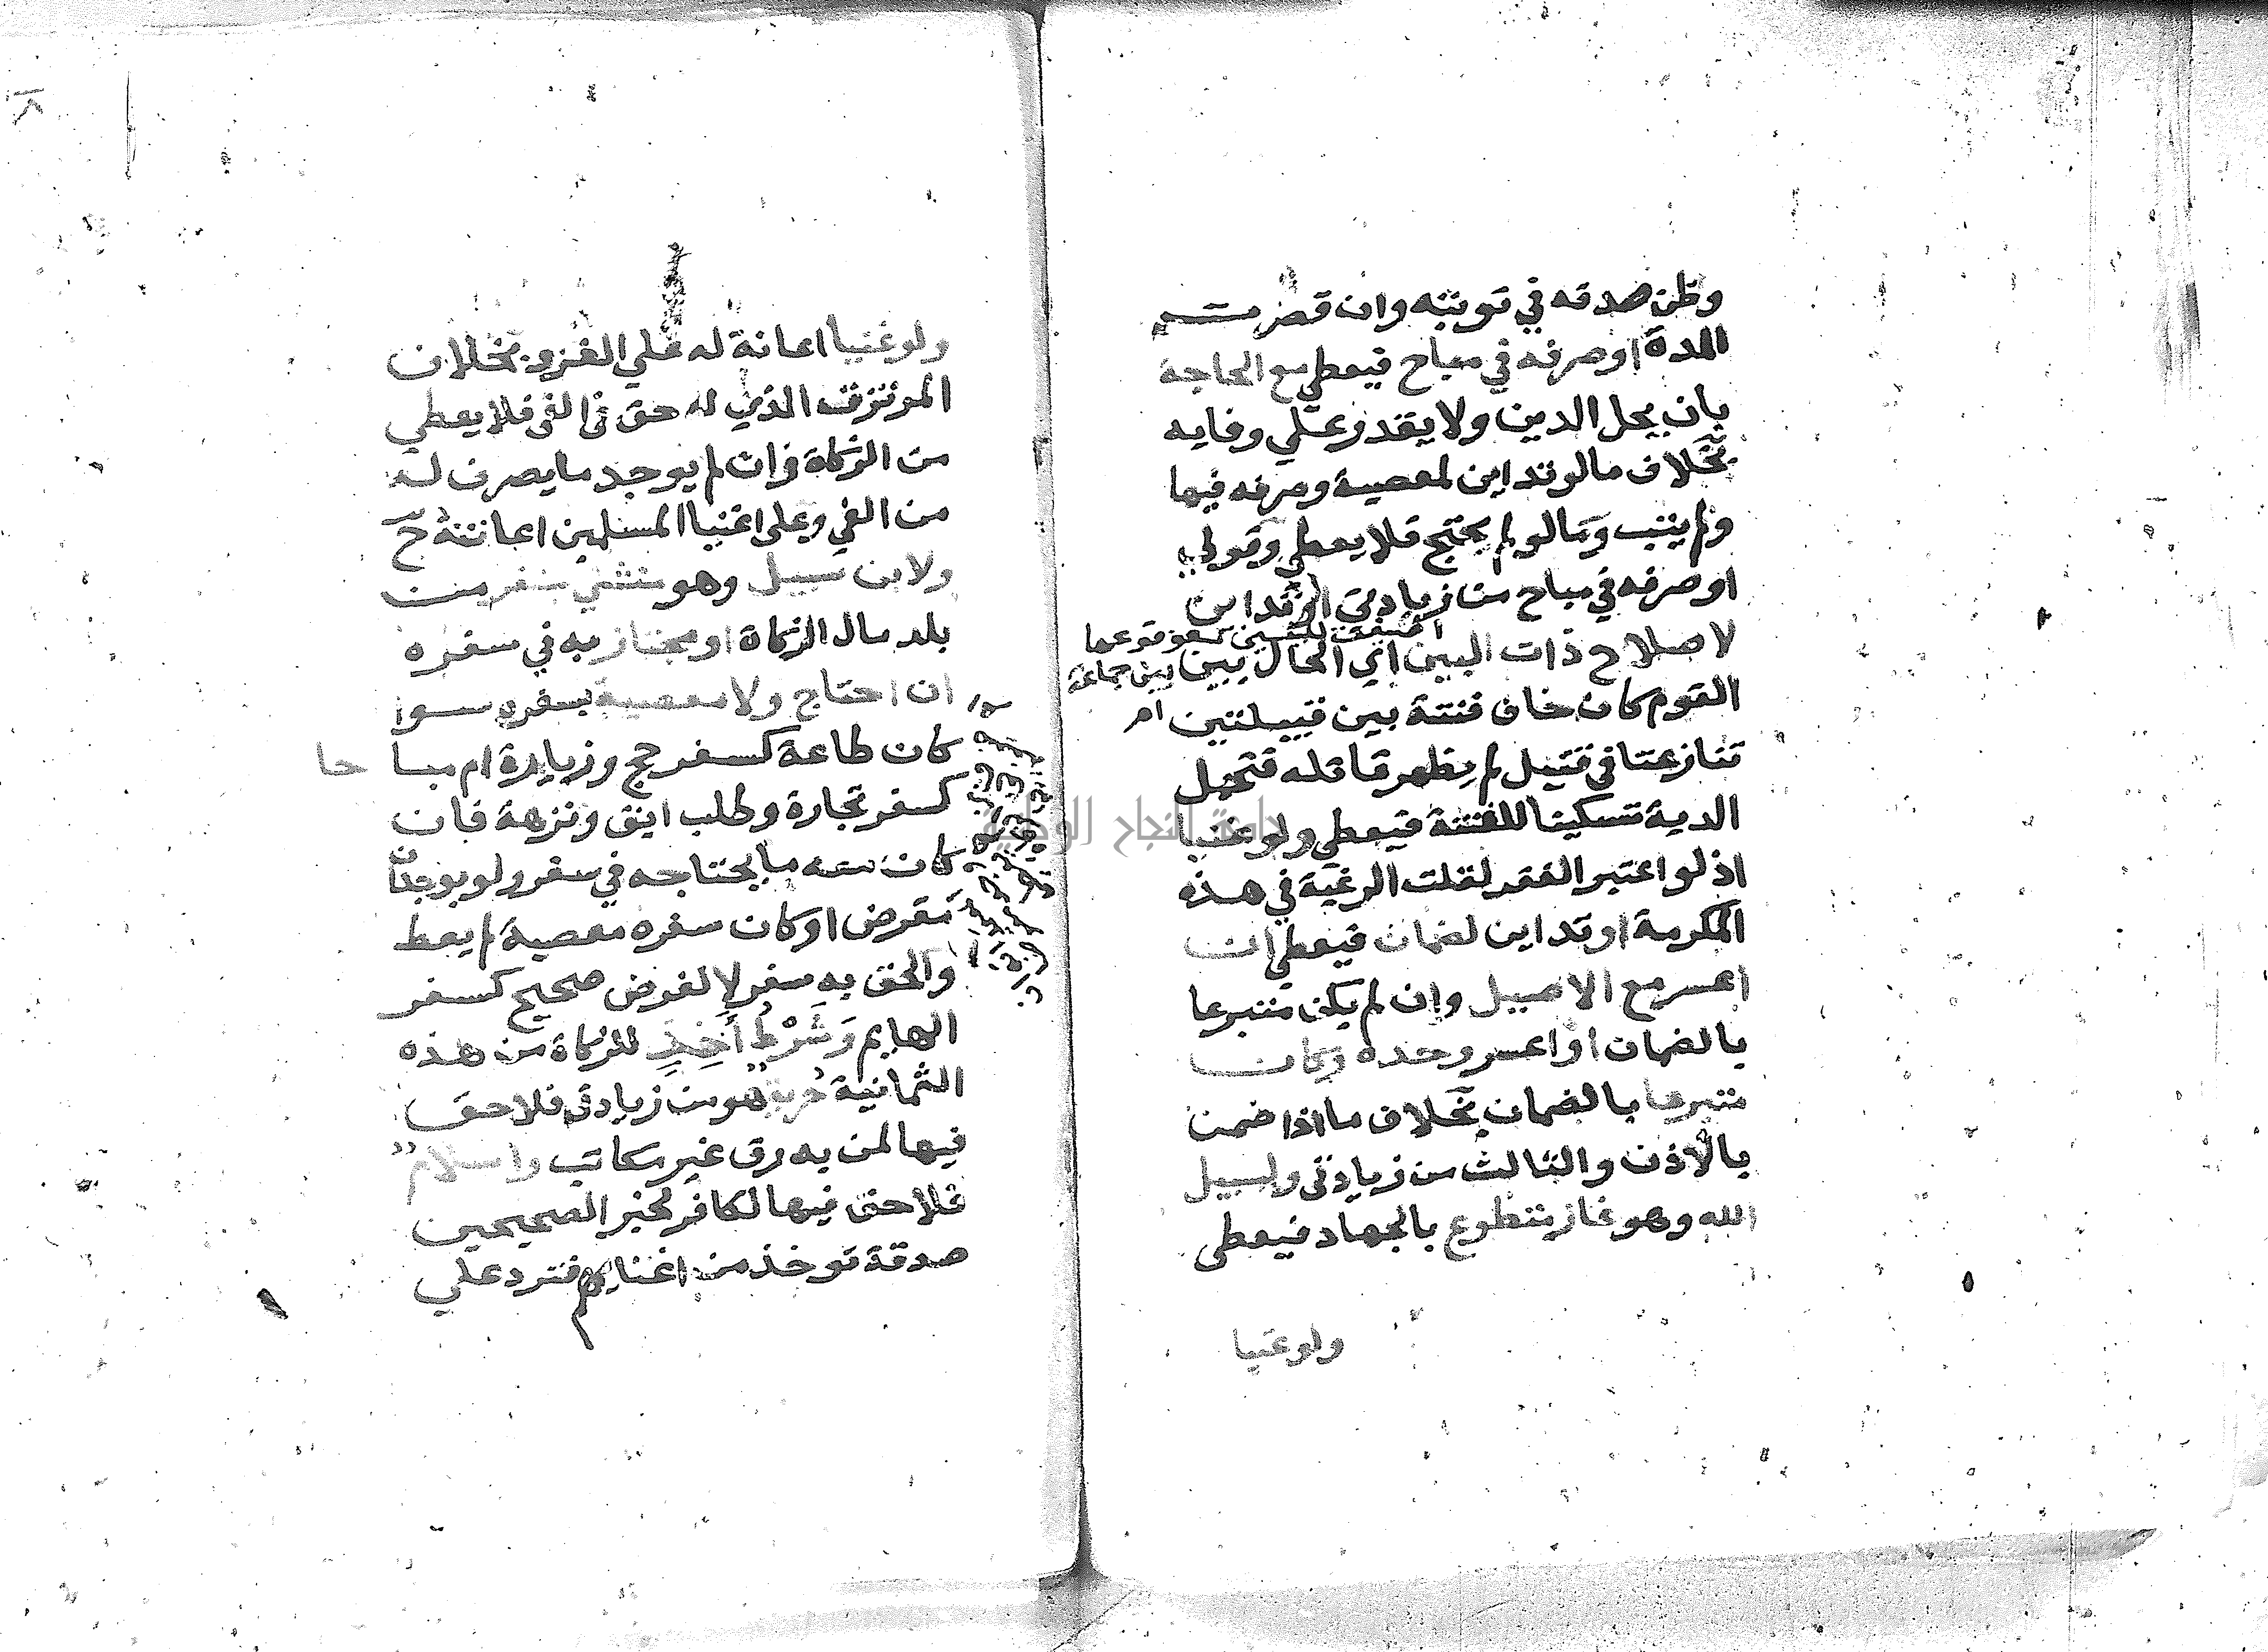 وظن صدقه في توبته وان قصرت
المدة او صرفه في مباح فيعطي مع الحاجة
بان يحل الدين ولا يقدر علي وفايه
بخلاف ما لو تداين لمعصية وصرفه فيها
ولم يتب وما لو لم يحتج فلا يعطي وقولي
او صرفه في مباح من زيادتي او تداين
لاصلاح ذات البين اي الحال بين
القوم كان خاف فتنة بين قبيلتين
تنازعتا في قتيل لم يظهر قاتله فتحمل
الدية تسكينا للفتنة فيعطي ولو غنيا
اذ لو اعتبر الفقر لقلت الرغبة في هذه
المكرمة او تداين لضمان فيعطي ان
اعسر مع الاصيل وان لم يكن متبرعا
بالضمان او اعسر وحده وكان
متبرعا بالضمان بخلاف ما اذا ضمن
بالاذن والثالث من زيادتي ولسبيل
الله وهو غاز متطوع بالجهاد فيعطي
ولو غنيا
ولو غنيا اعانة له علي الغزو بخلاف
المرتزق الذي له حق في الفي فلا يعطي
من الزكاة وان لم يوجد ما يصرف له
من الفي وعلي اغنيا المسلمين اعانته ح
ولابن سبيل وهو منشي سفر من
بلد مال الزكاة او مجتاز به في سفره
ان احتاج ولا معصية بسفره سوا
كان طاعة كسفر حج وزيارة ام مبا حا
كسفر تجارة وطلب ابق ونزهة فان
كان معه ما يحتاجه في سفره ولو بوجدان
مقرض او كان سفره معصية لم يعط
والحق به سفر لا لغرض صحيح كسفر
الهايم وَشَرْطُ آخِذٍ للزكاة من هذه
الثمانية حرية هو من زيادتي فلا حق
فيها لمن به رق غير مكاتب واسلام
فلا حق فيها لكافر لخبر الصحيحين
صدقة توخذ من اغنيايهم فترد علي
جامعة النجاح الوطنية